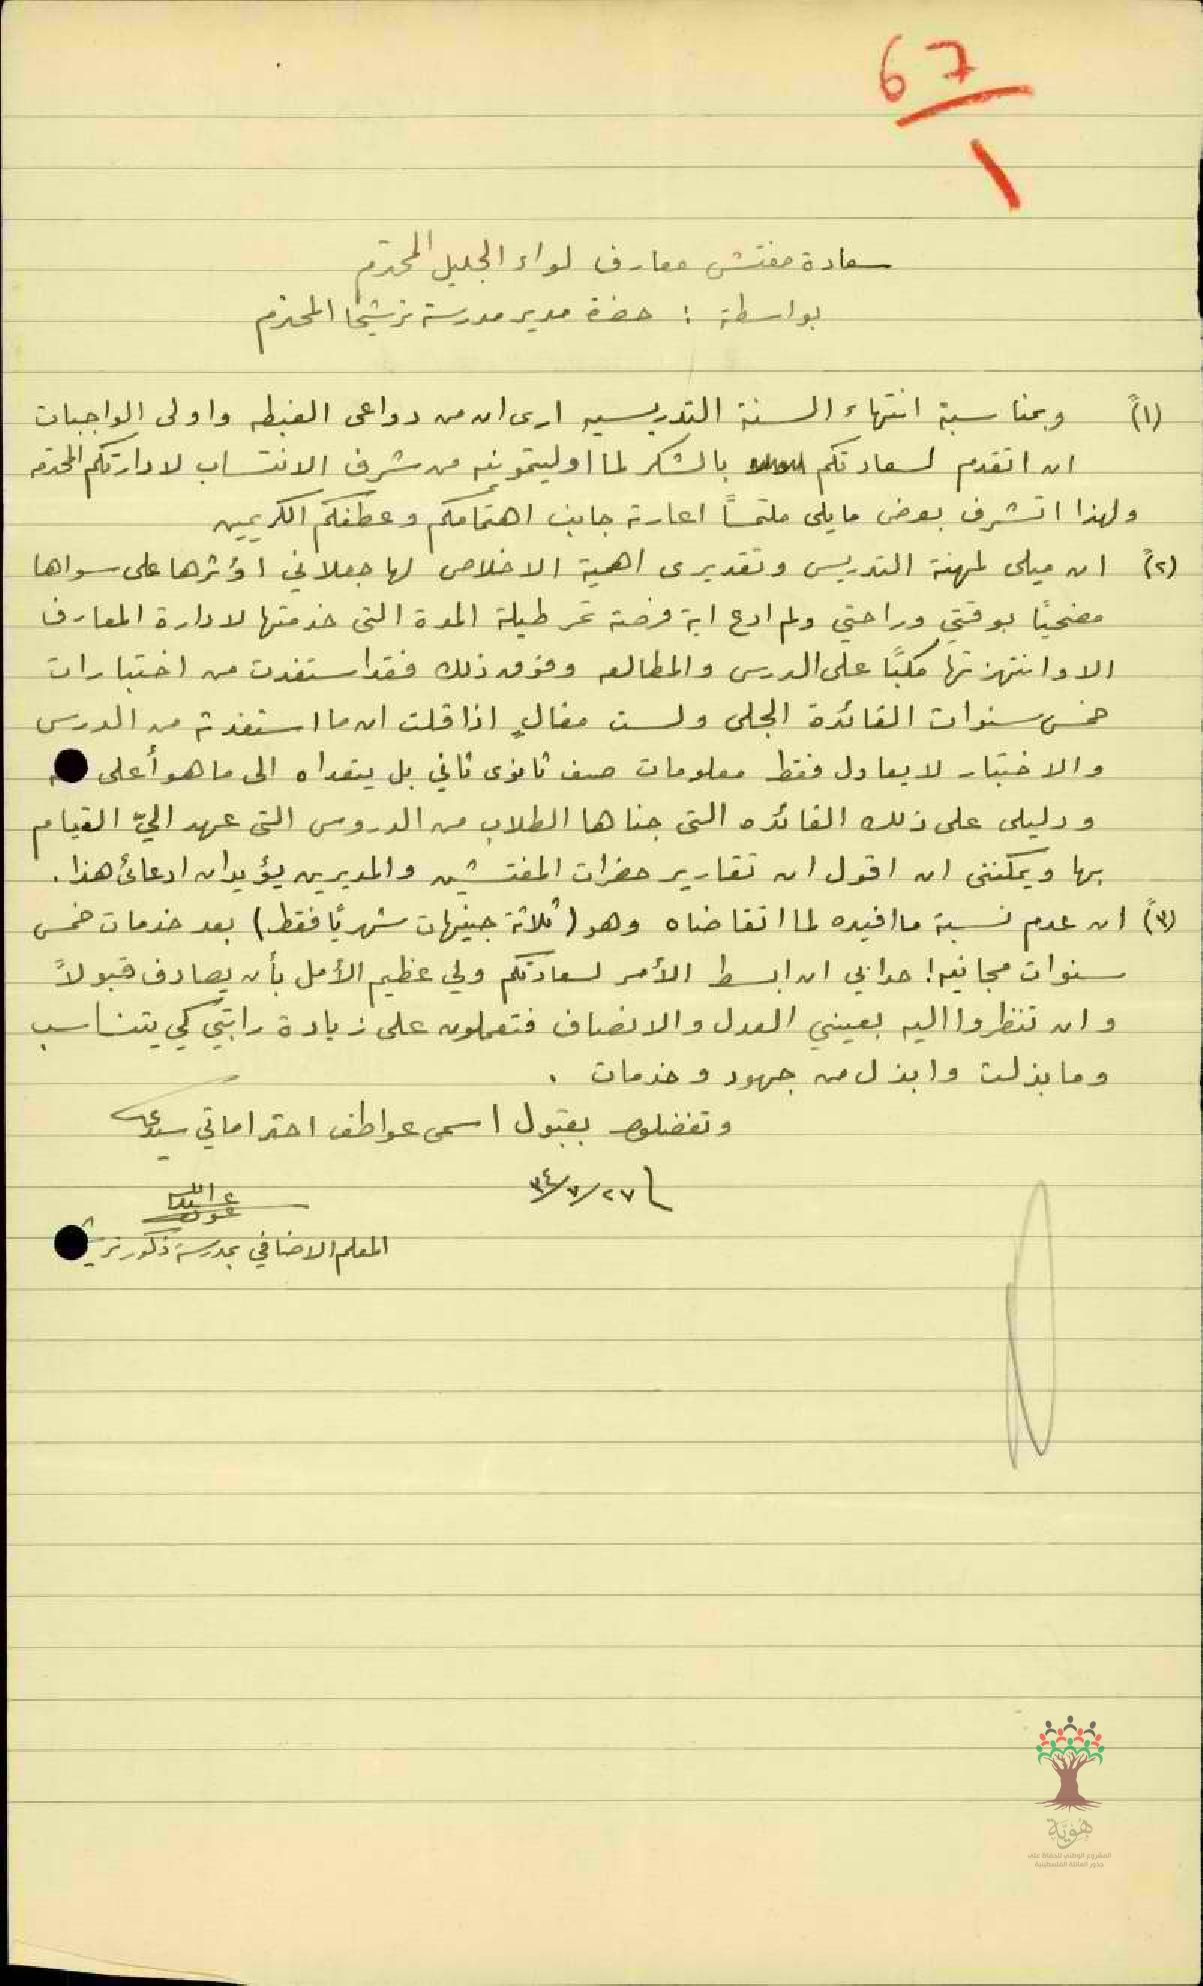 67
1
سعادة مفتش معارف لواء الجليل المحترم
بواسطة : حضرة مدير مدرسة ترشيحا المحترم
(١) وبمناسبة انتهاء السنة التدريسيه ارى ان من دواعى الغبطه واولى الواجبات
ان اتقدم لسعادتكم بالشكر لما اوليتمونيه من شرف الانتساب لادارتكم المحترمه
ولهذا اتشرف بعرض مايلى ملتمسًا اعارته جانب اهتمامكم وعطفكم الكريمين
(٢) ان ميلى لمهنة التدريس وتقديرى اهمية الاخلاص لها جعلاني اؤثرها على سواها
مضحيًا بوقتي وراحتي ولم ادع اية فرصة تمر طيلة المدة التى خدمتها لادارة المعارف
الا وانتهزتها مكبًا على الدرس والمطالعه وفوق ذلك فقد استفدت من اختبارات
خمس سنوات الفائدة الجلى ولست مغالٍ اذا قلت ان ما استفدته من الدرس
والاختبار لا يعادل فقط معلومات صف ثانوى ثاني بل يتعداه الى ما هو أعلى
ودليلى على ذلك الفائده التى جناها الطلاب من الدروس التى عهد اليّ القيام
بها ويمكننى ان اقول ان تقارير حضرات المفتشين والمديرين يؤيدان ادعائى هذا .
(٣) ان عدم نسبة ما افيده لما اتقاضاه وهو (ثلاثة جنيهات شهريًا فقط) بعد خدمات خمس
سنوات مجانيه! حدا بي ان ابسط الأمر لسعادتكم ولي عظيم الأمل بأن يصادف قبولاً
وان تنظروا اليه بعيني العدل والانصاف فتعملون على زيادة راتبي كي يتناسب
وما بذلت وابذل من جهود وخدمات .
وتفضلوا بقبول اسمى عواطف احتراماتي سيدى
٢٧/٧/٣٤
المعلم الاضافي بمدرسة ذكور
هوية
المشروع الوطني للحفاظ على
جذور العائلة الفلسطينية